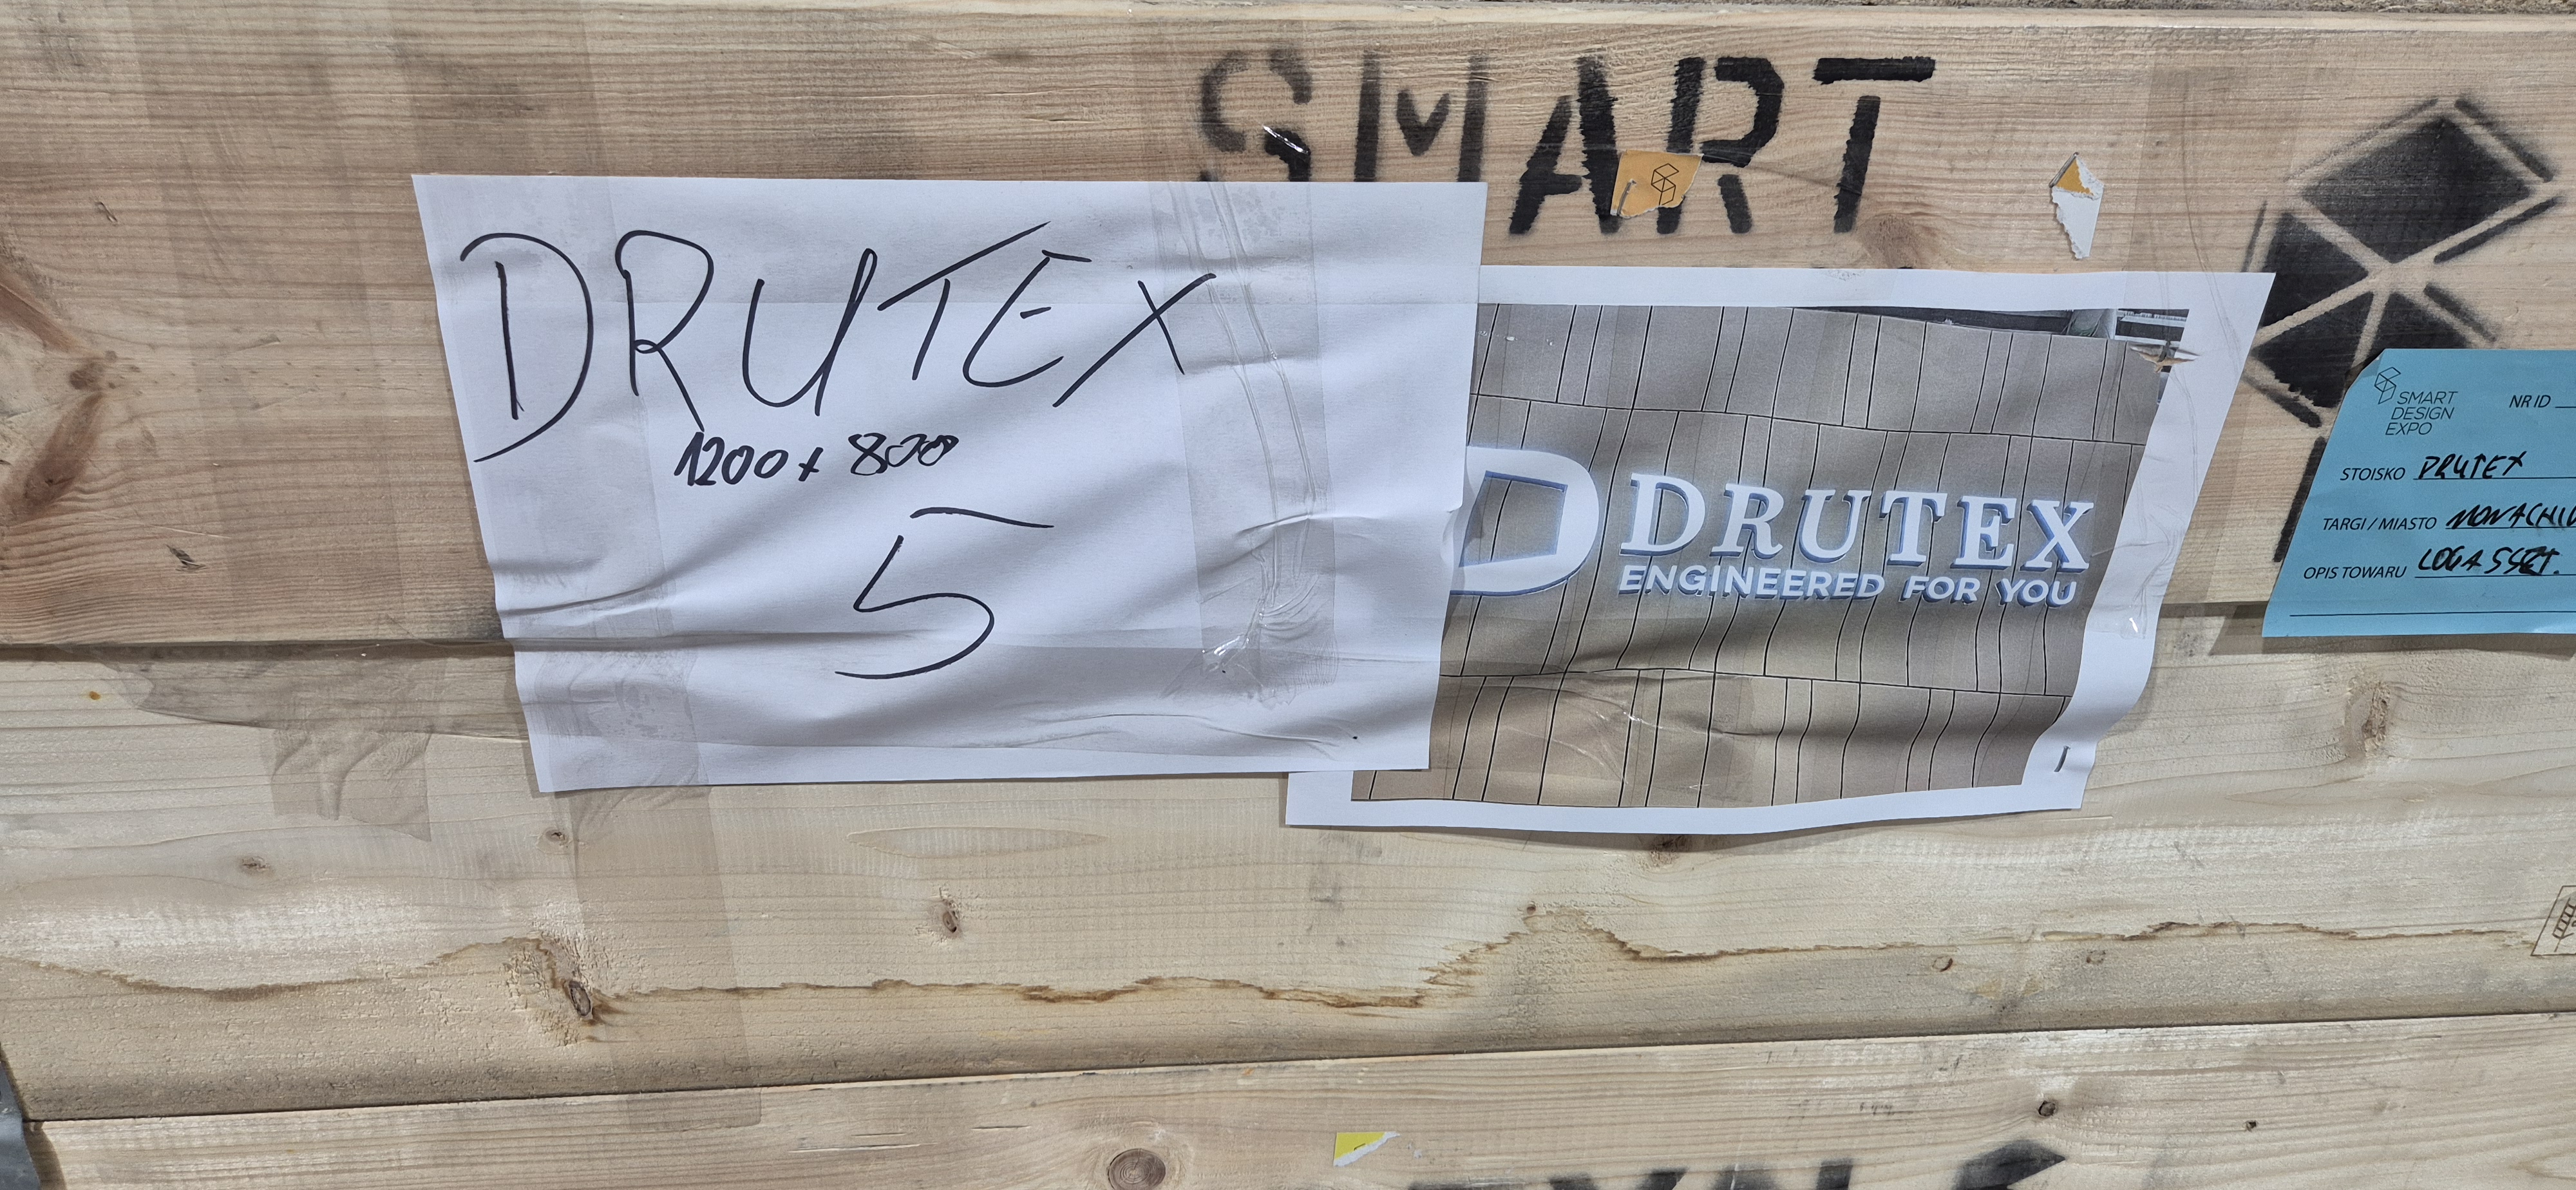 SMART
DRUTEX
1200 x 800
5
DRUTEX
ENGINEERED FOR YOU
SMART
DESIGN
EXPO
NR ID
STOISKO DRUTEX
TARGI / MIASTO
OPIS TOWARU